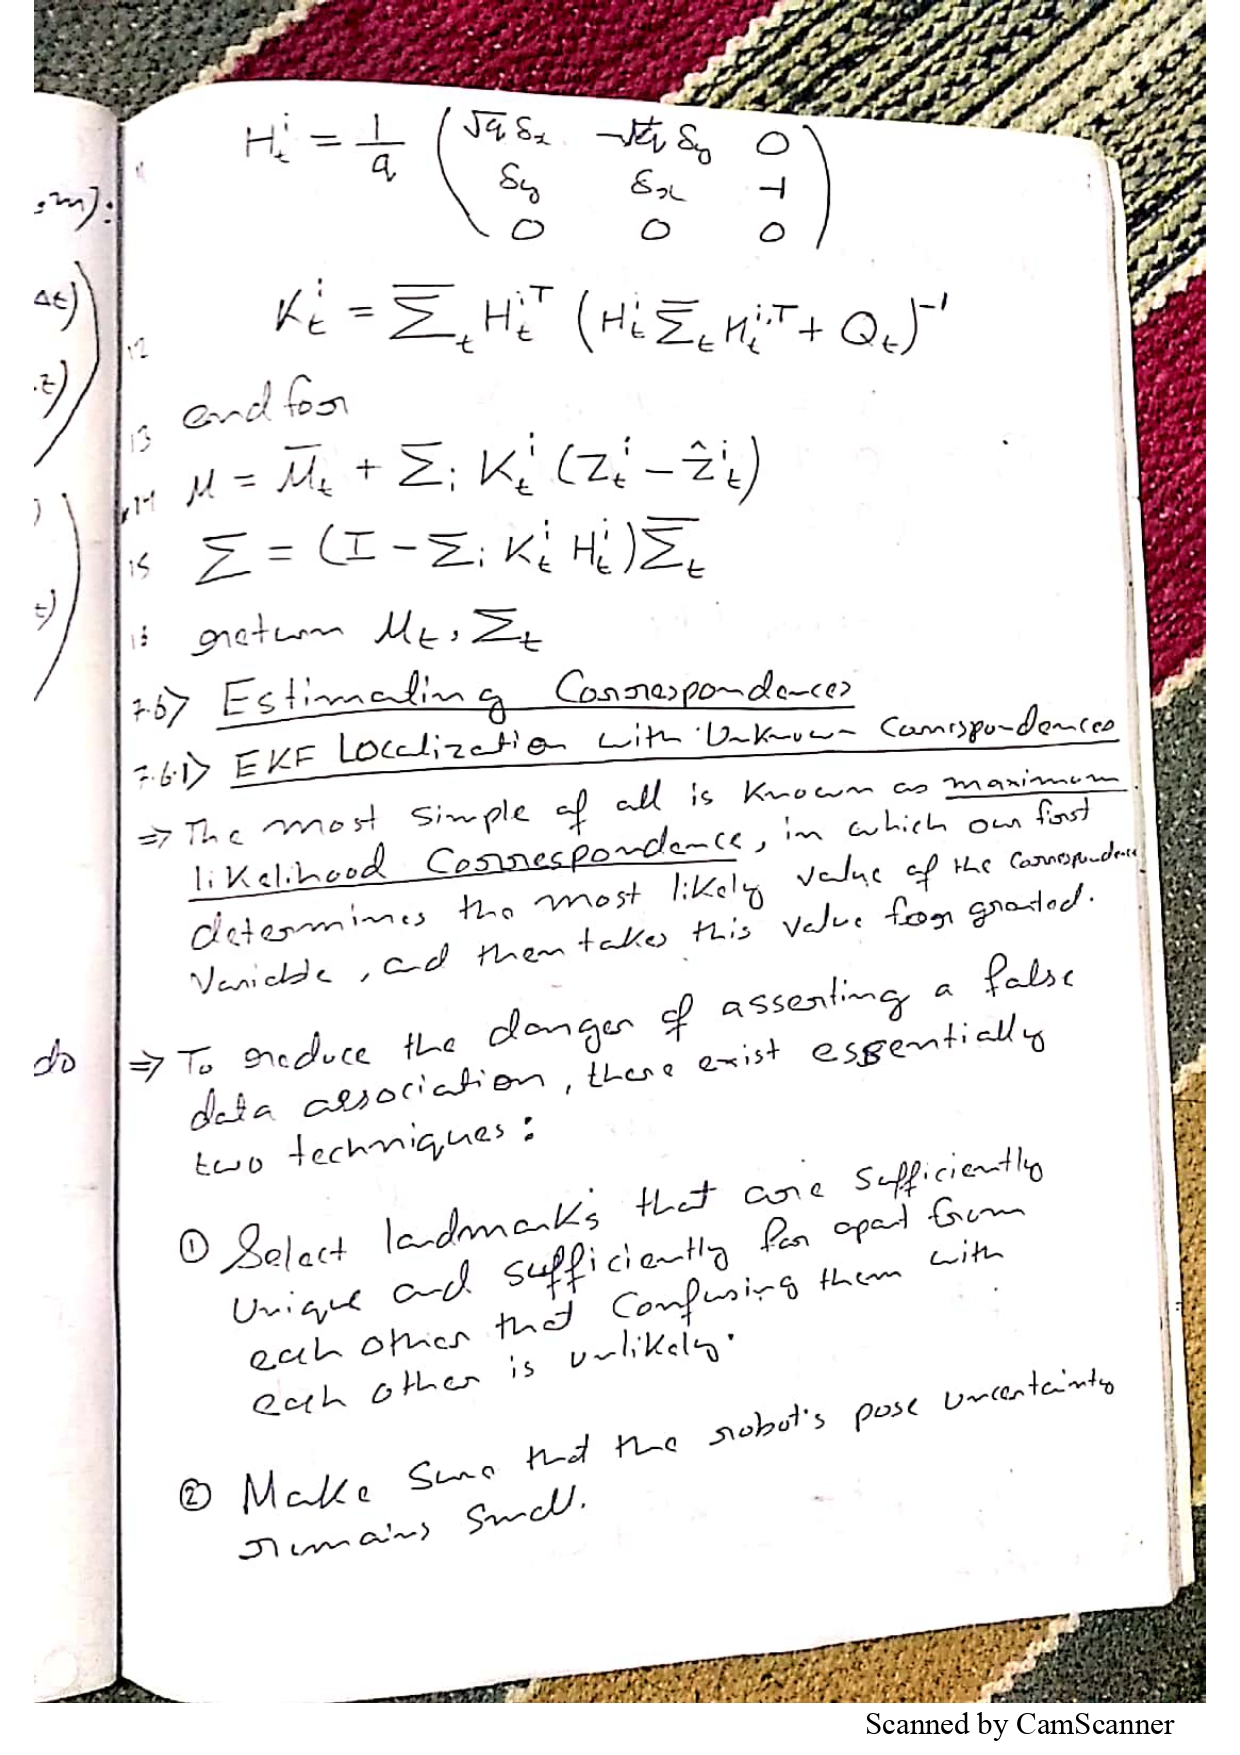 :m):
Δt)
.t)
)
t)
do
H_t^i = 1/q ( √q δx  -√q δy  0
δy  δx  -1
0  0  0 )
12 K_t^i = Σ̅_t H_t^{i,T} (H_t^i Σ̅_t H_t^{i,T} + Q_t)^{-1}
13 end for
14 μ = μ̅_t + Σ_i K_t^i (Z_t^i - ẑ_t^i)
15 Σ = (I - Σ_i K_t^i H_t^i) Σ̅_t
16 return μ_t, Σ̅_t
7.6> Estimating Correspondences
7.6.1> EKF Localization with Unknown Correspondences
⇒ The most simple of all is known as maximum
likelihood Correspondence, in which our first
determines the most likely value of the correspondence
variable, and then takes this value for granted.
⇒ To reduce the danger of asserting a false
data association, there exist essentially
two techniques:
① Select landmarks that are sufficiently
unique and sufficiently far apart from
each other that confusing them with
each other is unlikely.
② Make sure that the robot's pose uncertainty
remains small.
Scanned by CamScanner